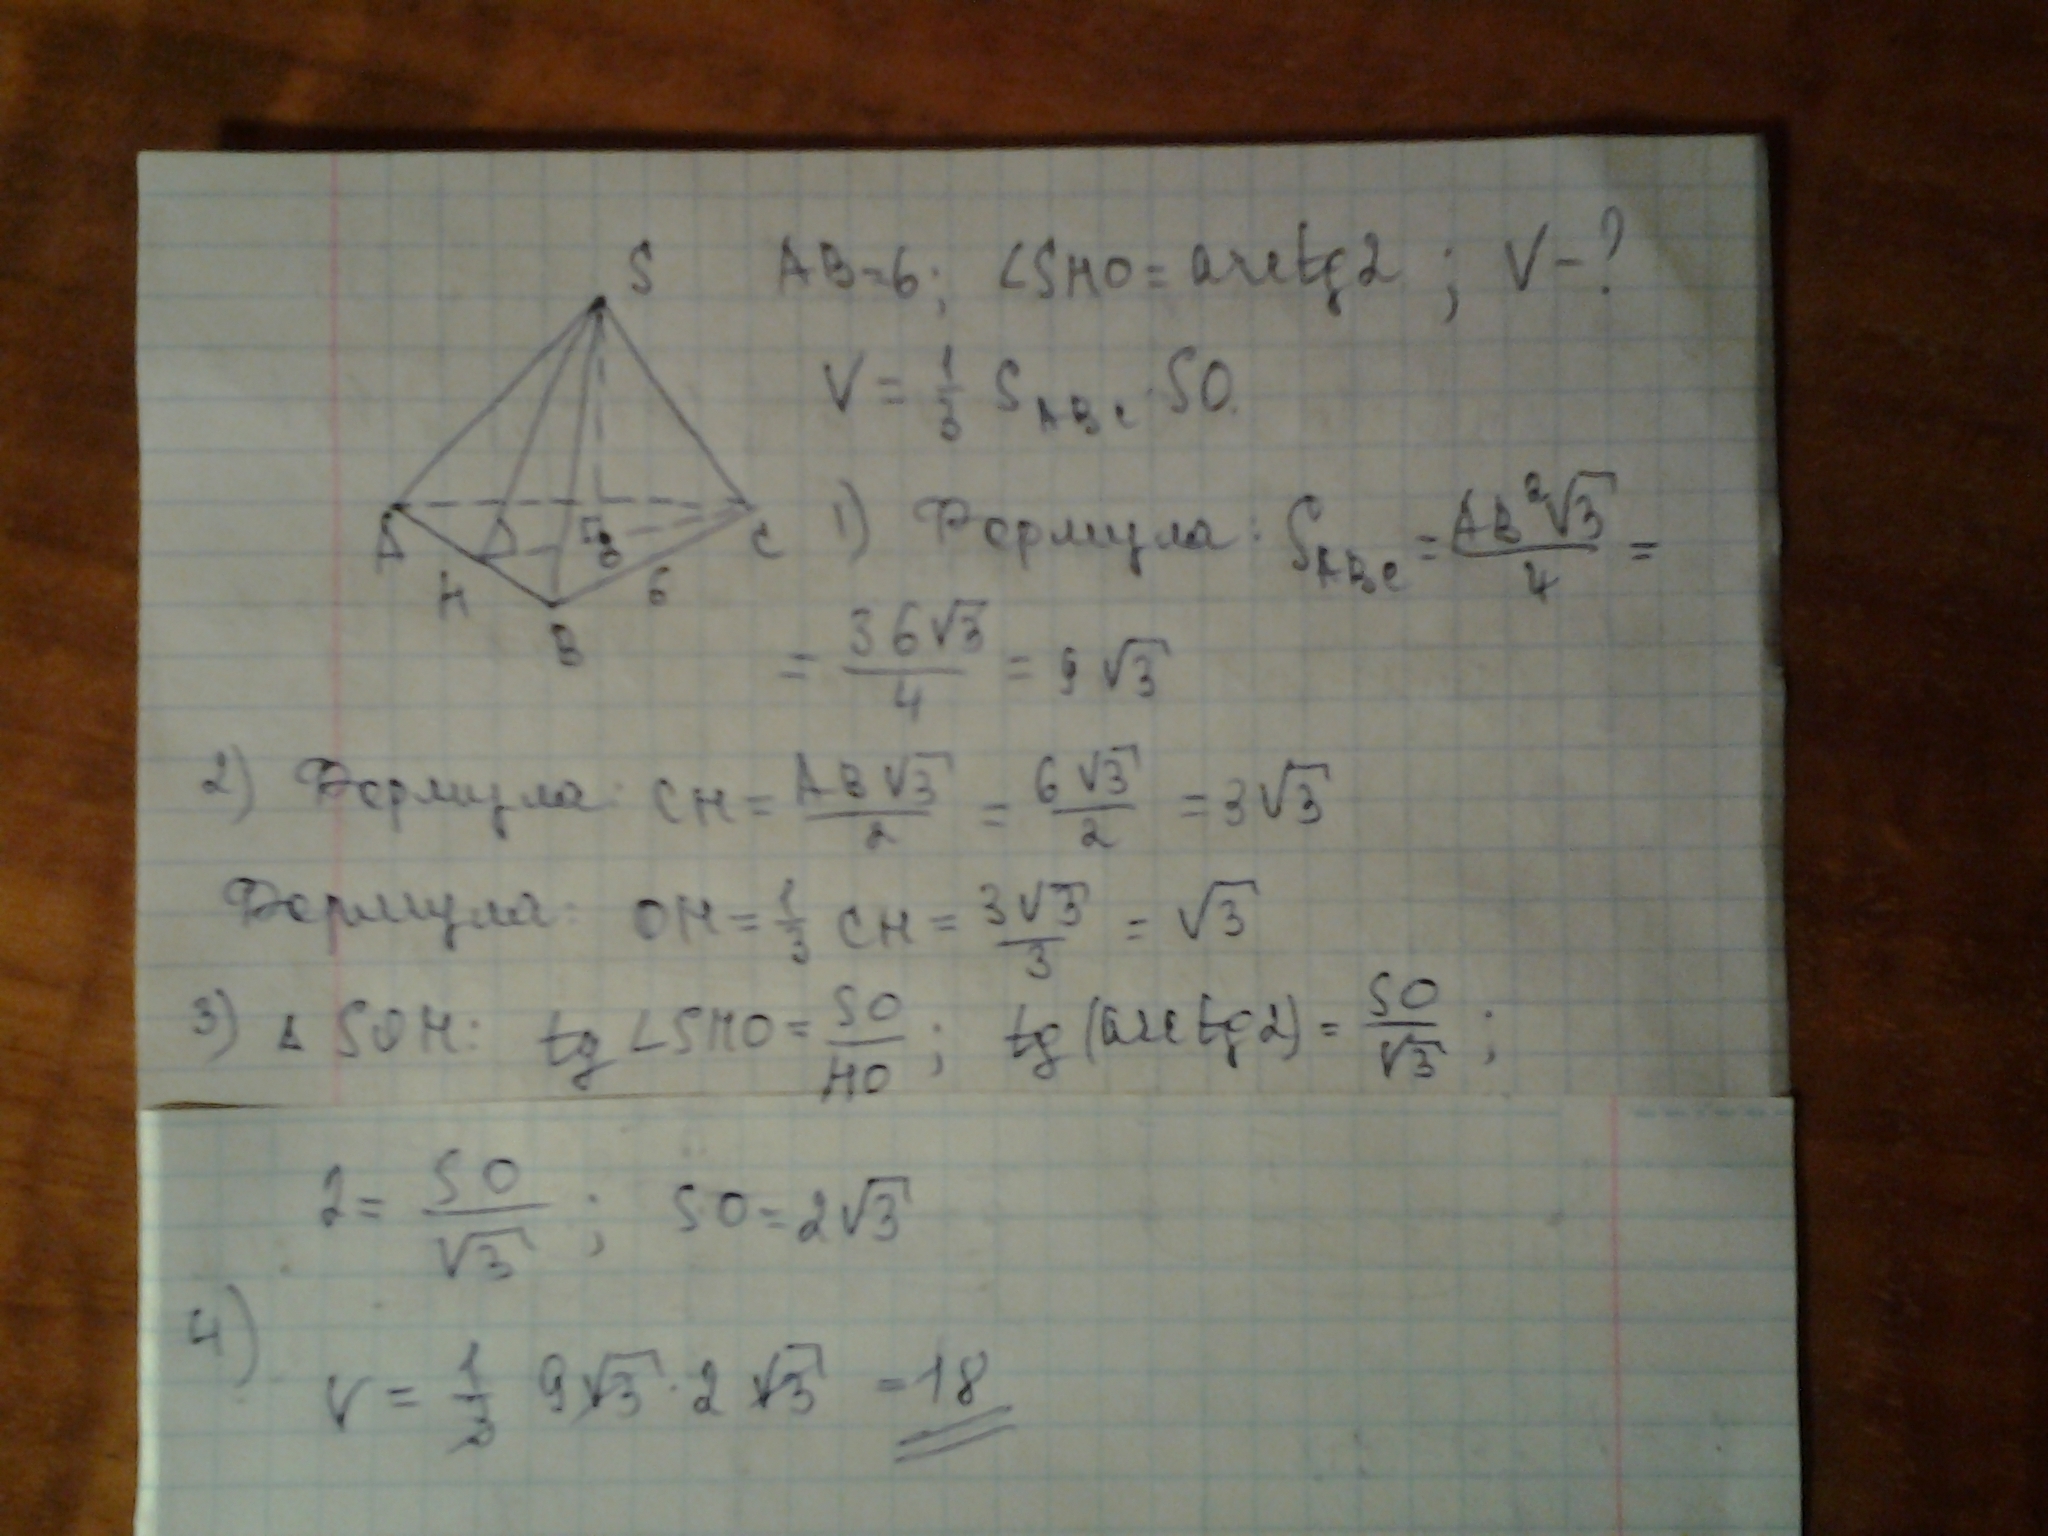 S
AB=6; ∠SHO=arctg2; V-?
V = 1/3 S_ABC · SO
A
C
H
6
B
1) Формула: S_ABC = AB²√3/4 =
= 36√3/4 = 9√3
2) Формула: CH = AB√3/2 = 6√3/2 = 3√3
Формула: OH = 1/3 CH = 3√3/3 = √3
3) Δ SOH: tg∠SHO = SO/HO; tg(arctg2) = SO/√3;
2 = SO/√3; SO = 2√3
4)
V = 1/3 9√3 · 2√3 = 18